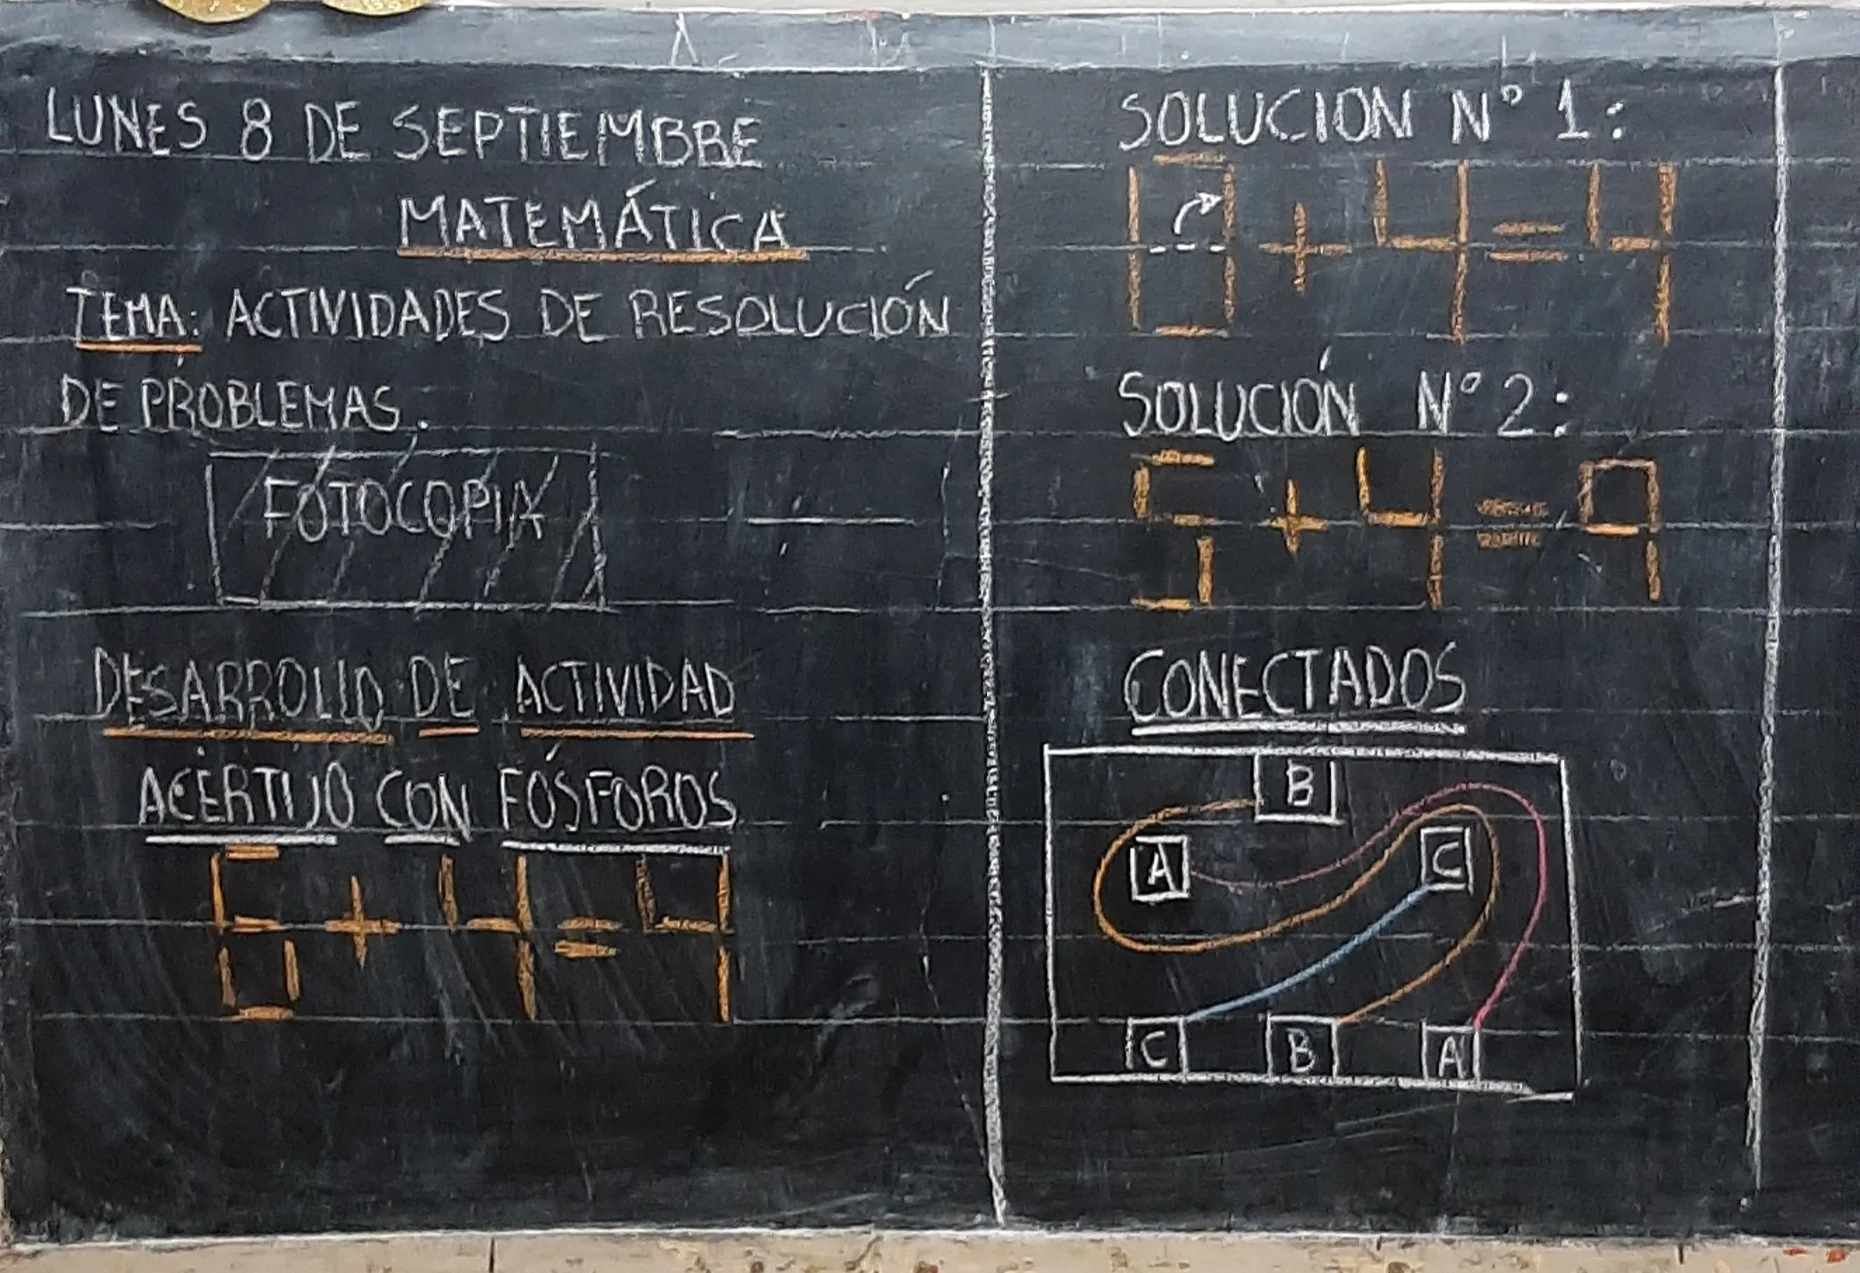 LUNES 8 DE SEPTIEMBRE
MATEMÁTICA
TEMA: ACTIVIDADES DE RESOLUCIÓN
DE PROBLEMAS.
FOTOCOPIA
DESARROLLO DE ACTIVIDAD
ACERTIJO CON FÓSFOROS
6+4=4
SOLUCION N° 1:
0+4=4
SOLUCIÓN N° 2:
5+4=9
CONECTADOS
B
A C
C B A